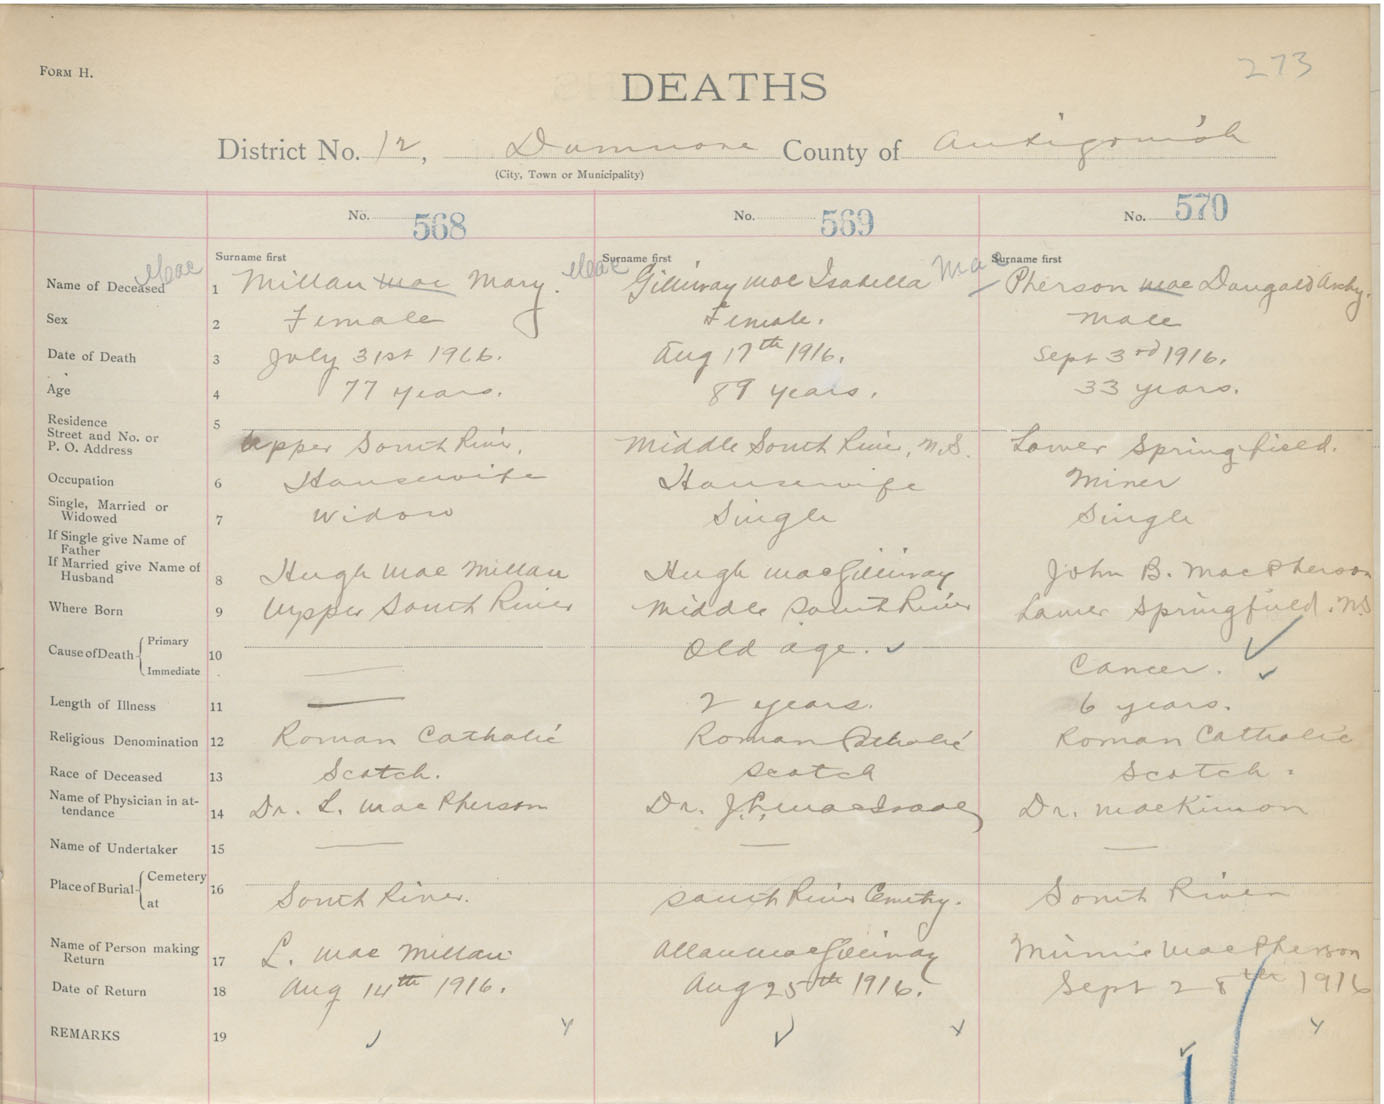 FORM H.
273
DEATHS
District No. 12, Dunmore County of Antigonish
(City, Town or Municipality)
No. 568 No. 569 No. 570
Surname first Surname first Surname first
Name of Deceased 1 Mac Millan Mac Mary. Mac Gillivray Mac Isabella Mac Pherson Mac Dougald Archy.
Sex 2 Female Female. Male
Date of Death 3 July 31st 1916. Aug 17th 1916. Sept 3rd 1916.
Age 4 77 years. 89 years. 33 years.
Residence 5
Street and No. or
P. O. Address Upper South River. Middle South River, N.S. Lower Springfield.
Occupation 6 Housewife Housewife Miner
Single, Married or
Widowed 7 Widow Single Single
If Single give Name of
Father
If Married give Name of
Husband 8 Hugh Mac Millan Hugh MacGillivray John B. MacPherson
Where Born 9 Upper South River Middle South River Lower Springfield. N.S
Cause of Death Primary 10 Old age.
Immediate Cancer.
Length of Illness 11 2 years. 6 years.
Religious Denomination 12 Roman Catholic Roman Catholic Roman Catholic
Race of Deceased 13 Scotch. Scotch Scotch.
Name of Physician in at-
tendance 14 Dr. L. MacPherson Dr. J.P. MacIsaac Dr. MacKinnon
Name of Undertaker 15
Place of Burial Cemetery
at 16 South River. South River Cemetry. South River
Name of Person making
Return 17 L. Mac Millan Allan MacGillivray Minnie MacPherson
Date of Return 18 Aug 14th 1916. Aug 25th 1916. Sept 28th 1916
REMARKS 19